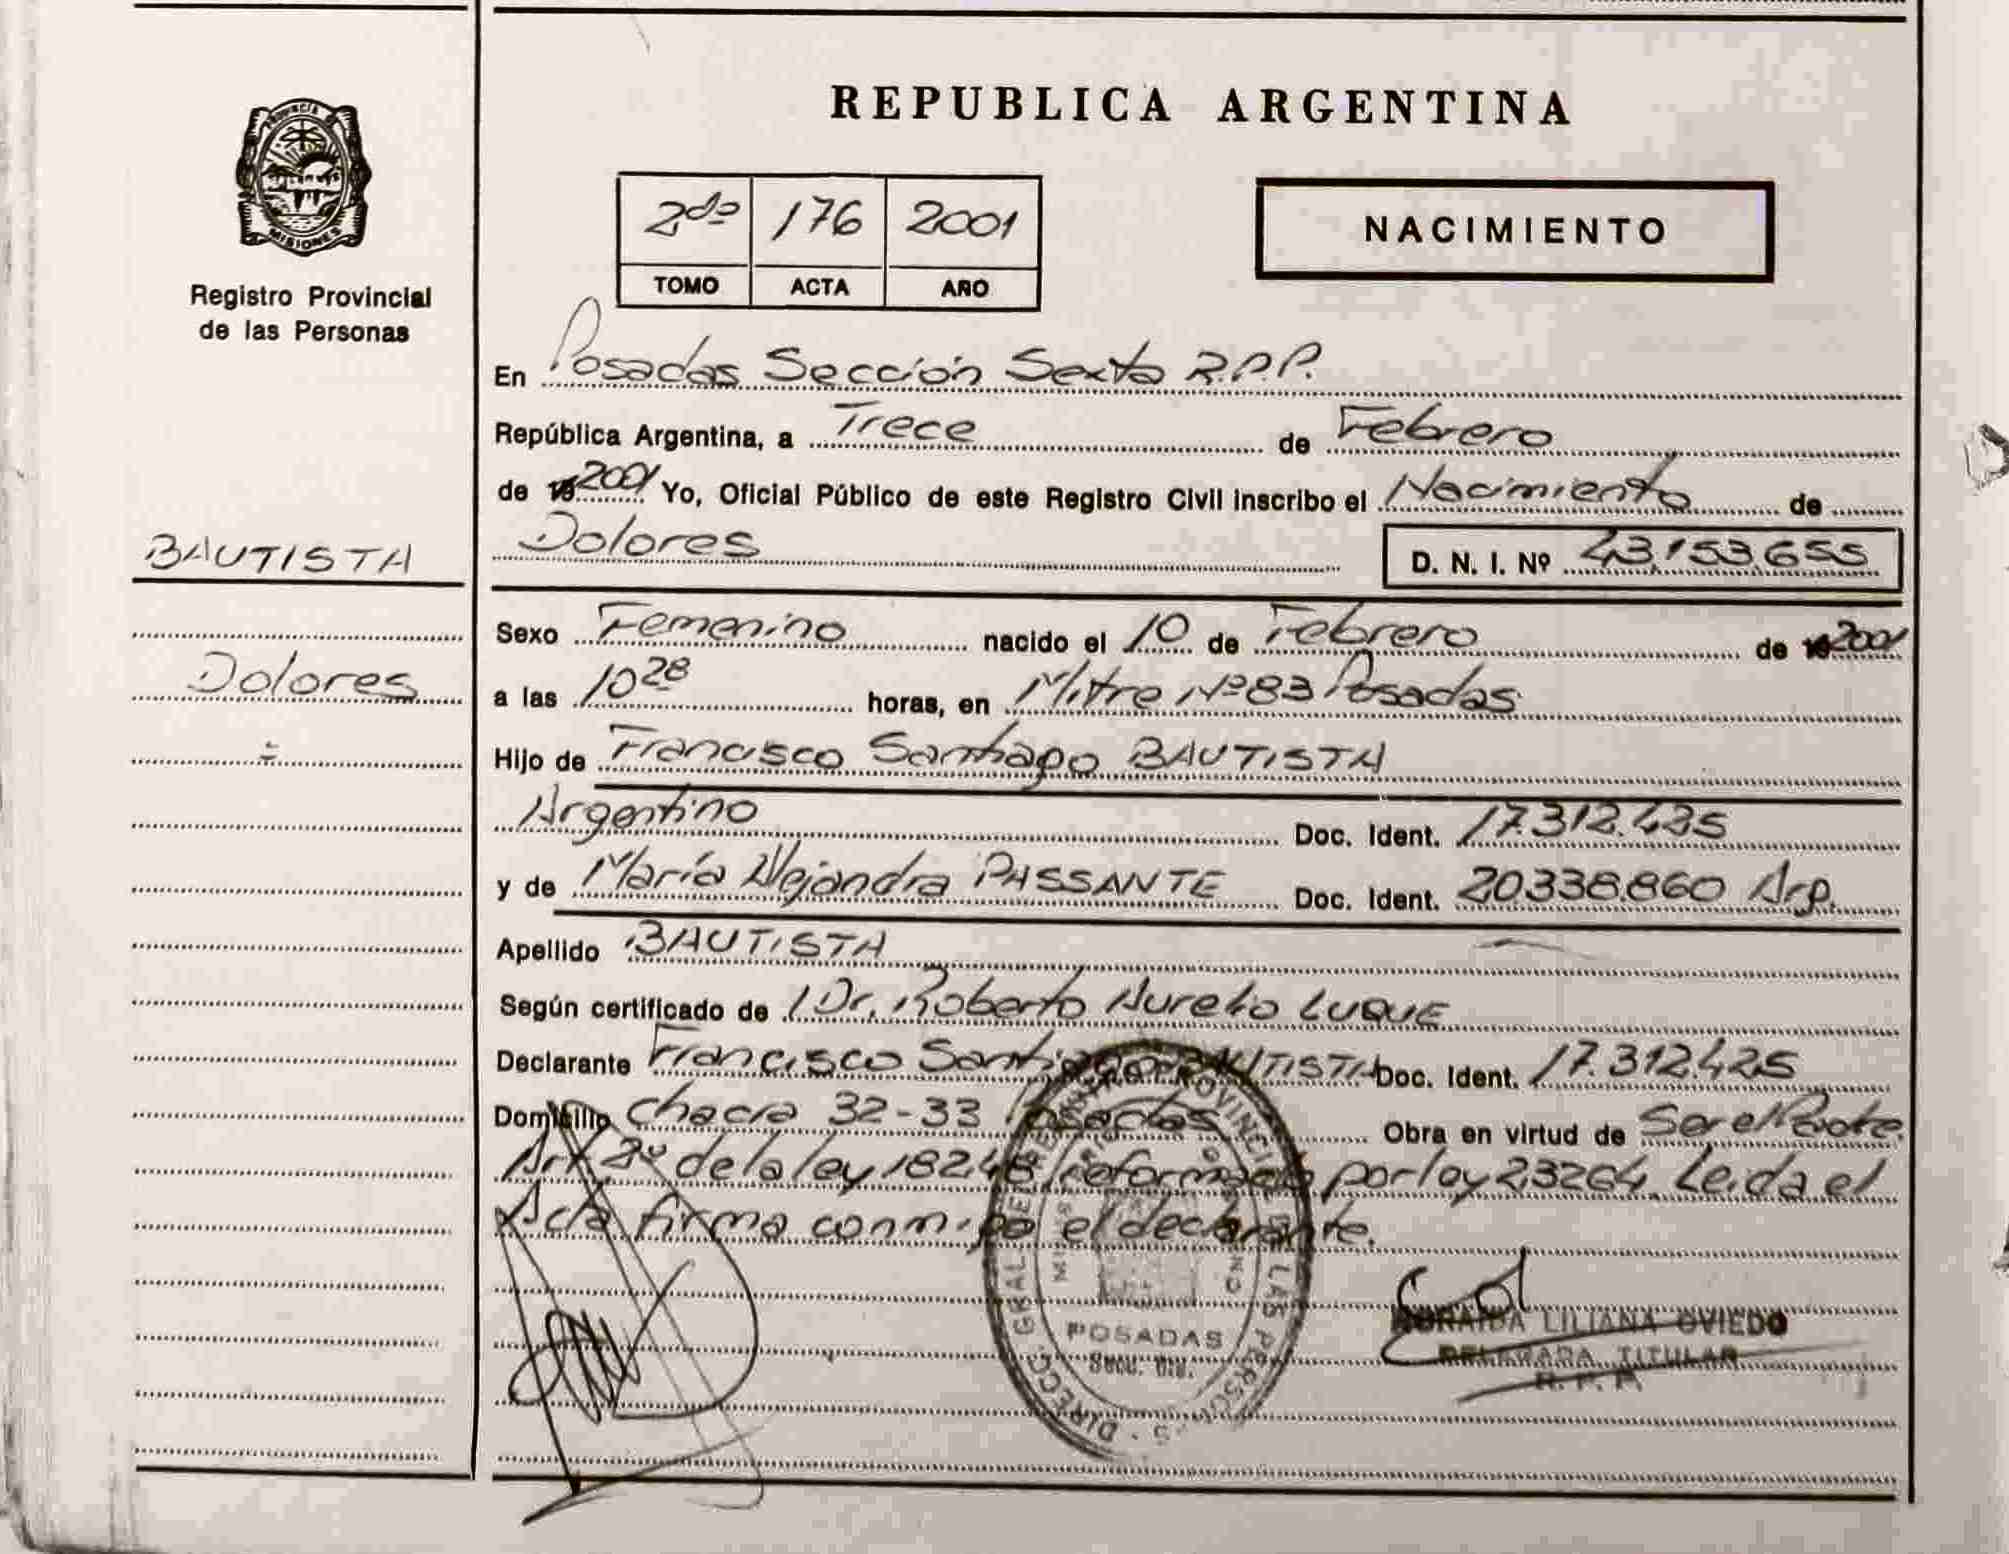 REPUBLICA ARGENTINA
PROVINCIA DE
MISIONES
Registro Provincial
de las Personas
2do 176 2001
TOMO ACTA AÑO
NACIMIENTO
En Posadas Sección Sexta R.P.P.
República Argentina, a Trece de Febrero
de 19 2001 Yo, Oficial Público de este Registro Civil inscribo el Nacimiento de
BAUTISTA
Dolores D. N. I. Nº 43.153.655
Sexo Femenino nacido el 10 de Febrero de 19 2001
Dolores
a las 10 28 horas, en Mitre Nº 83 Posadas
Hijo de Francisco Santiago BAUTISTA
Argentino Doc. Ident. 17.312.425
y de María Alejandra PASSANTE Doc. Ident. 20338.860 Arg.
Apellido BAUTISTA
Según certificado de Dr. Roberto Aurelio LUQUE
Declarante Francisco Santiago BAUTISTA Doc. Ident. 17.312.425
Domicilio Chacra 32-33 Posadas Obra en virtud de Ser el Padre
Art. 2º de la ley 18248 reformada por ley 23264. Leida el
Acta firma conmigo el declarante.
DIRECC. GRAL. DEL REG. PROVINCIAL DE LAS PERSONAS
POSADAS
LILIANA OVIEDO
DELEGADA TITULAR
R. P. P.